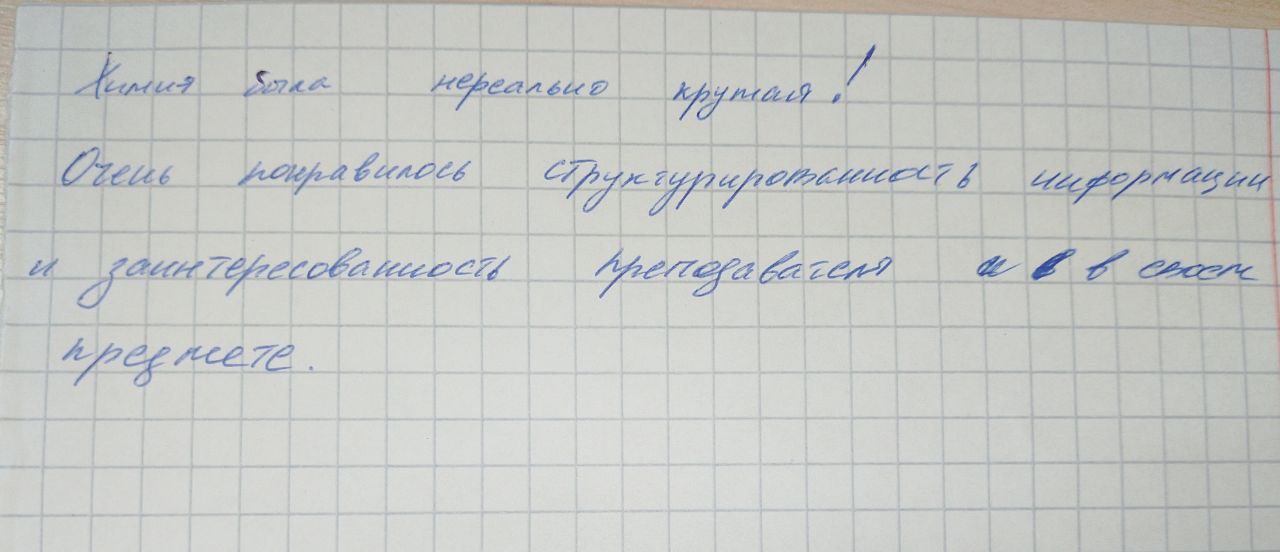 Химия была нереально крутая!
Очень понравилось структурированность информации
и заинтересованность преподавателя в своем
предмете.